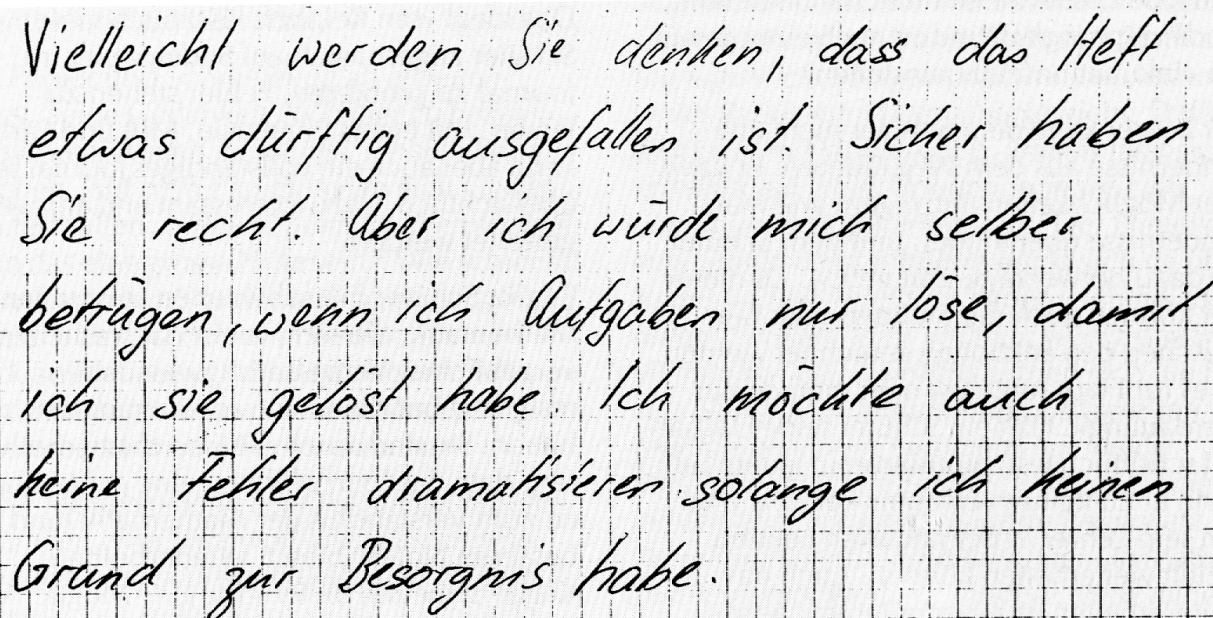 Vielleicht werden Sie denken, dass das Heft
etwas dürftig ausgefallen ist. Sicher haben
Sie recht. Aber ich würde mich selber
betrügen, wenn ich Aufgaben nur löse, damit
ich sie gelöst habe Ich möchte auch
keine Fehler dramatisieren solange ich keinen
Grund zur Besorgnis habe.